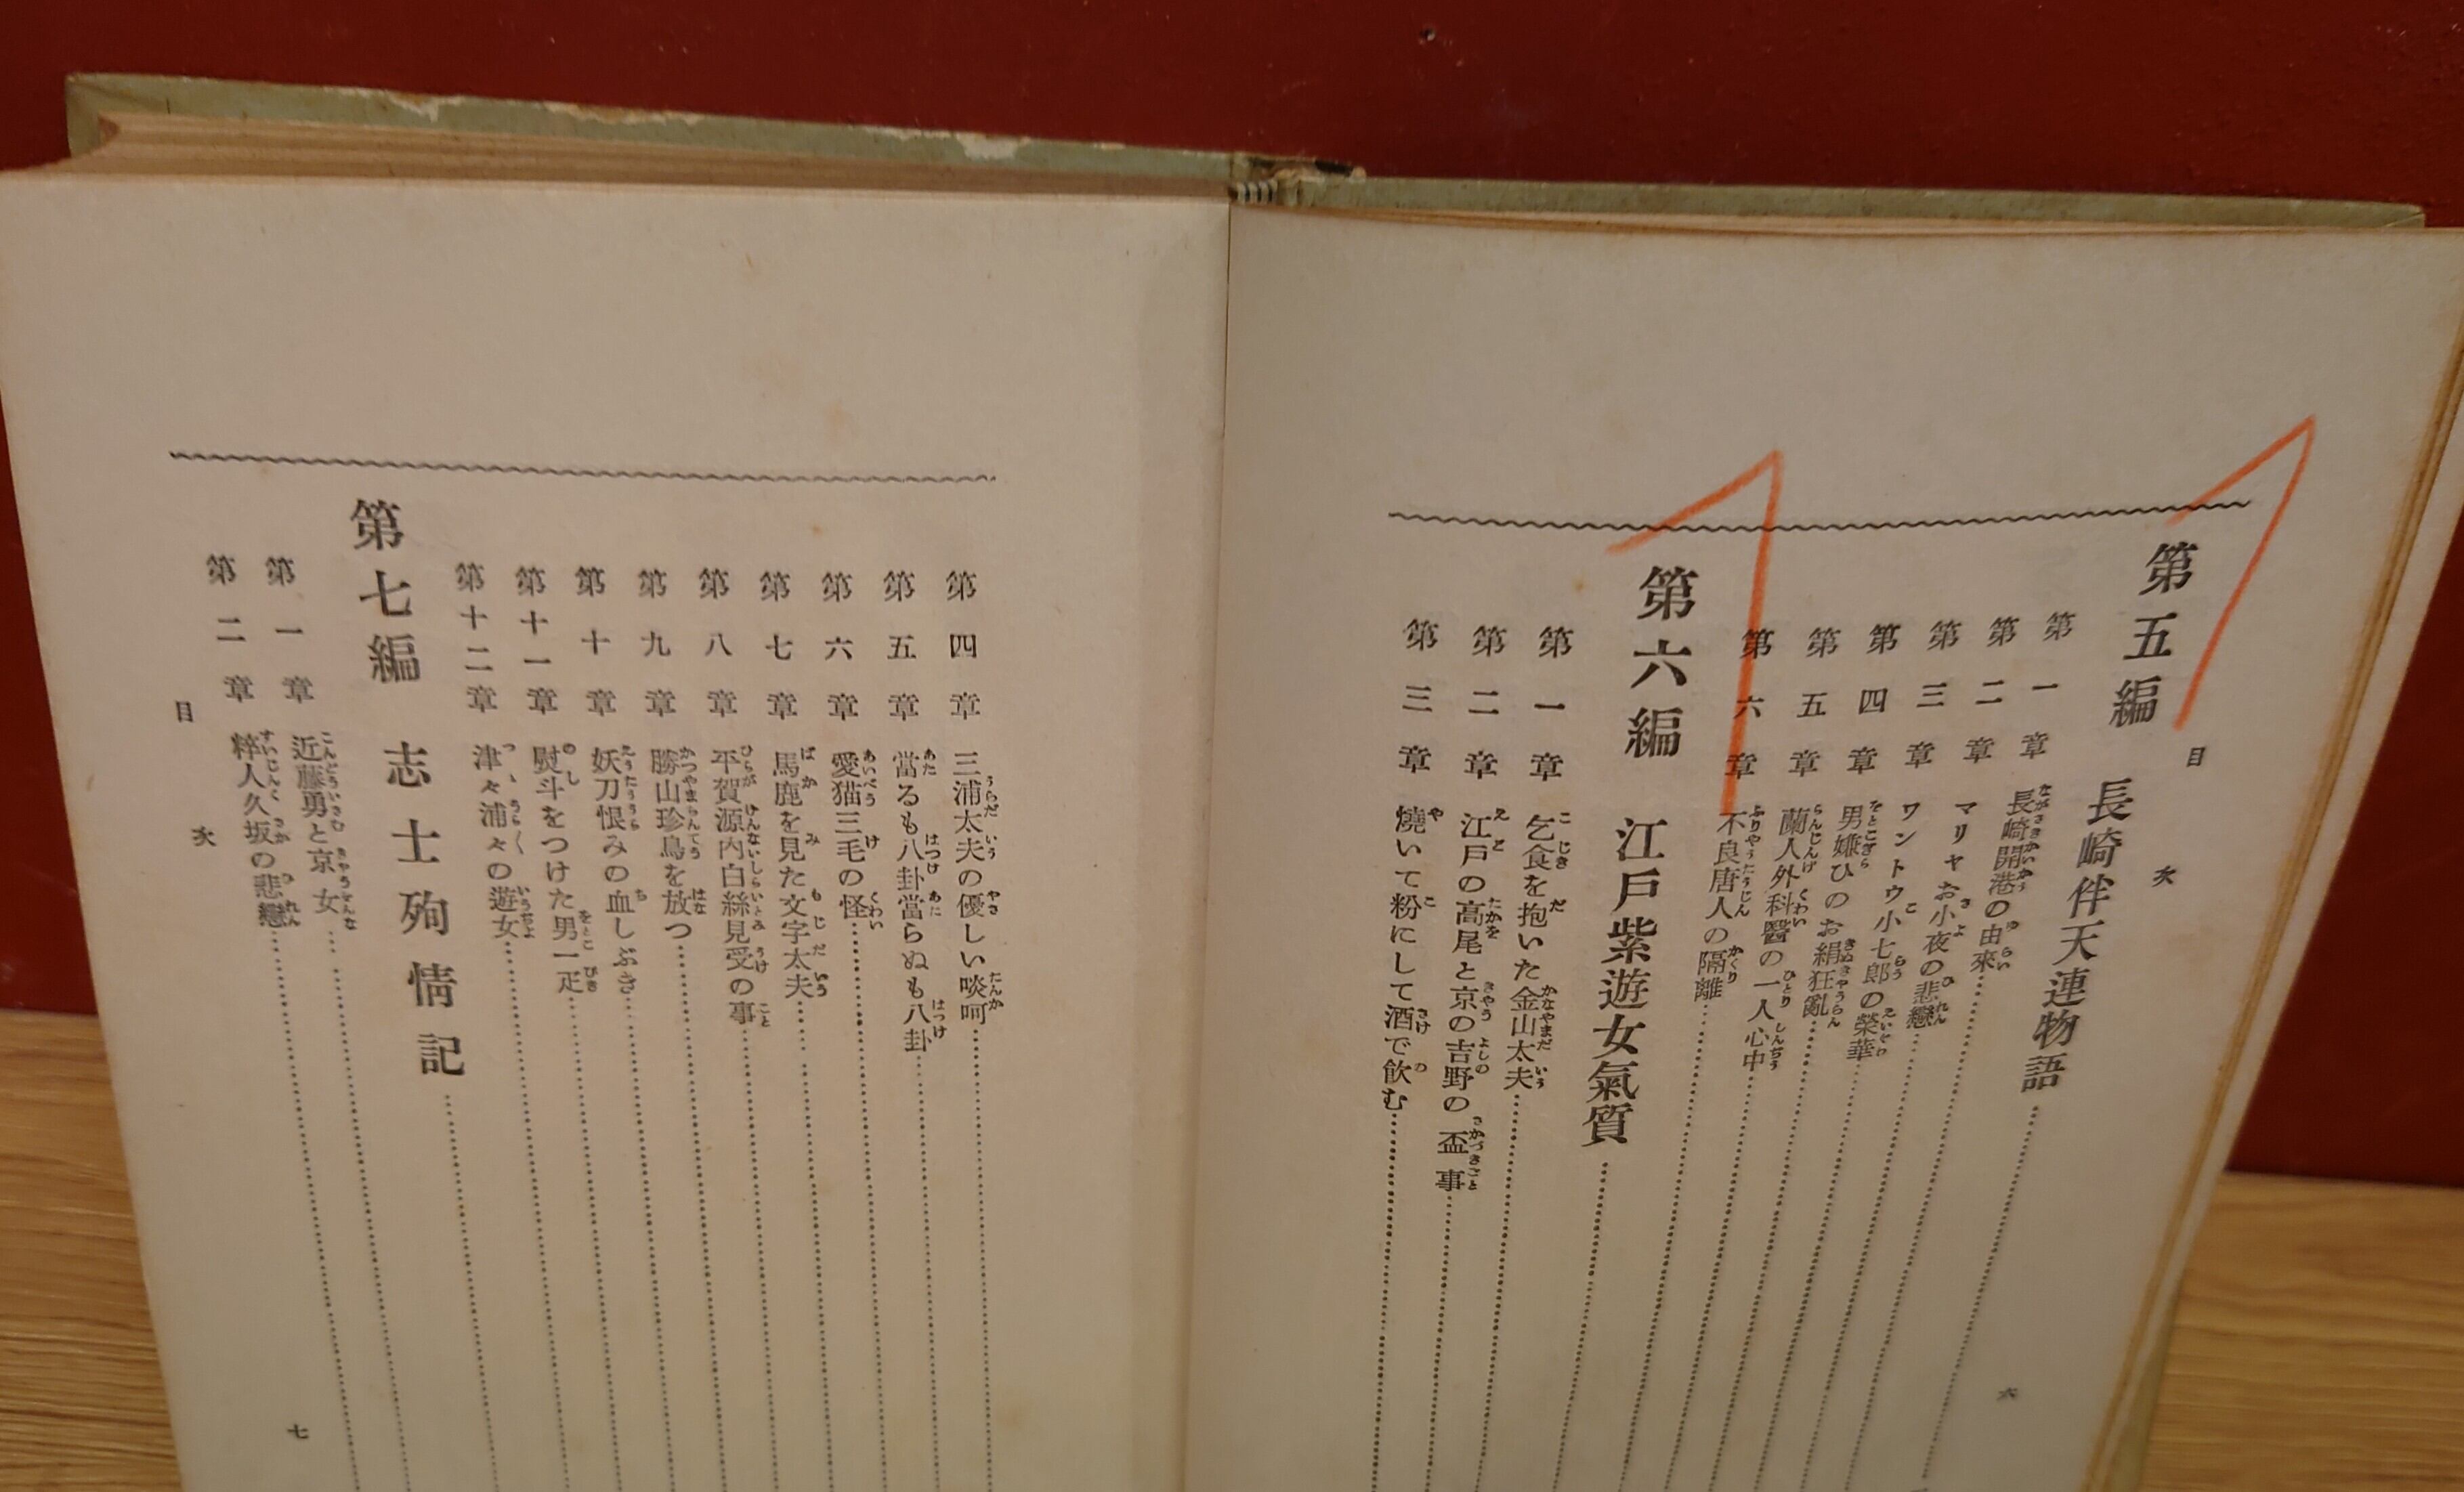 目次
第五編 長崎伴天連物語
第一章 長崎開港の由來
第二章 マリヤお小夜の悲戀
第三章 ワントウ小七郎の榮華
第四章 男嫌ひのお絹狂亂
第五章 蘭人外科醫の一人心中
第六章 不良唐人の隔離
第六編 江戸紫遊女氣質
第一章 乞食を抱いた金山太夫
第二章 江戸の高尾と京の吉野の盃事
第三章 燒いて粉にして酒で飮む
六
第四章 三浦太夫の優しい啖呵
第五章 當るも八卦當らぬも八卦
第六章 愛猫三毛の怪
第七章 馬鹿を見た文字太夫
第八章 平賀源内白絲見受の事
第九章 勝山珍鳥を放つ
第十章 妖刀恨みの血しぶき
第十一章 熨斗をつけた男一疋
第十二章 津々浦々の遊女
第七編 志士殉情記
第一章 近藤勇と京女
第二章 粹人久坂の悲戀
目次
七